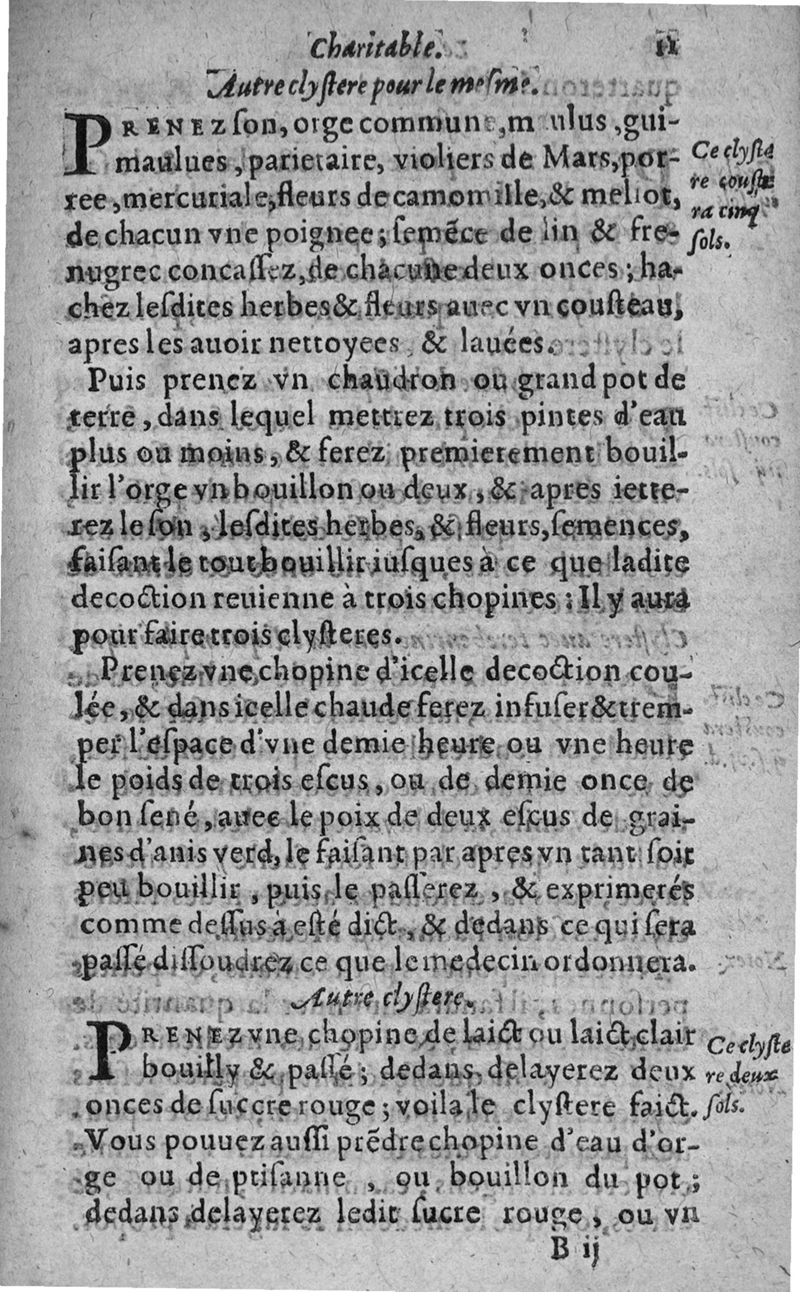 Charitable. 11
Autre clyſtere pour le meſme.
PRENEZ ſon, orge commune, m ulus, gui-
maulues, parietaire, violiers de Mars, por-
ree, mercuriale, fleurs de camomille, & melilot,
de chacun vne poignee; ſemẽce de lin & fre-
nugrec concaſſez, de chacune deux onces; ha-
chez leſdites herbes & fleurs auec vn couſteau,
apres les auoir nettoyees, & lauées.
Ce clyſte
re couſte
ra cinq
ſols.
Puis prenez vn chaudron ou grand pot de
terre, dans lequel mettrez trois pintes d'eau
plus ou moins, & ferez premierement bouil-
lir l'orge vn bouillon ou deux, & apres iette-
rez le ſon, leſdites herbes, & fleurs, ſemences,
faiſant le tout bouillir iuſques à ce que ladite
decoction reuienne à trois chopines: Il y aura
pour faire trois clyſteres.
Prenez vne chopine d'icelle decoction cou-
lée, & dans icelle chaude ferez infuſer & trem-
per l'eſpace d'vne demie heure ou vne heure
le poids de trois eſcus, ou de demie once de
bon ſené, auec le poix de deux eſcus de grai-
nes d'anis verd, le faiſant par apres vn tant ſoit
peu bouillir, puis le paſſerez, & exprimerés
comme deſſus à eſté dict, & dedans ce qui ſera
paſſé diſſoudrez ce que le medecin ordonnera.
Autre clyſtere.
PRENEZ vne chopine de laict ou laict clair
bouilly & paſſé; dedans delayerez deux
onces de ſuccre rouge; voila le clyſtere faict.
Vous pouuez auſſi prẽdre chopine d'eau d'or-
ge ou de ptiſanne, ou bouillon du pot;
dedans delayerez ledit ſucre rouge, ou vn
Ce clyſte
re deux
ſols.
B ij